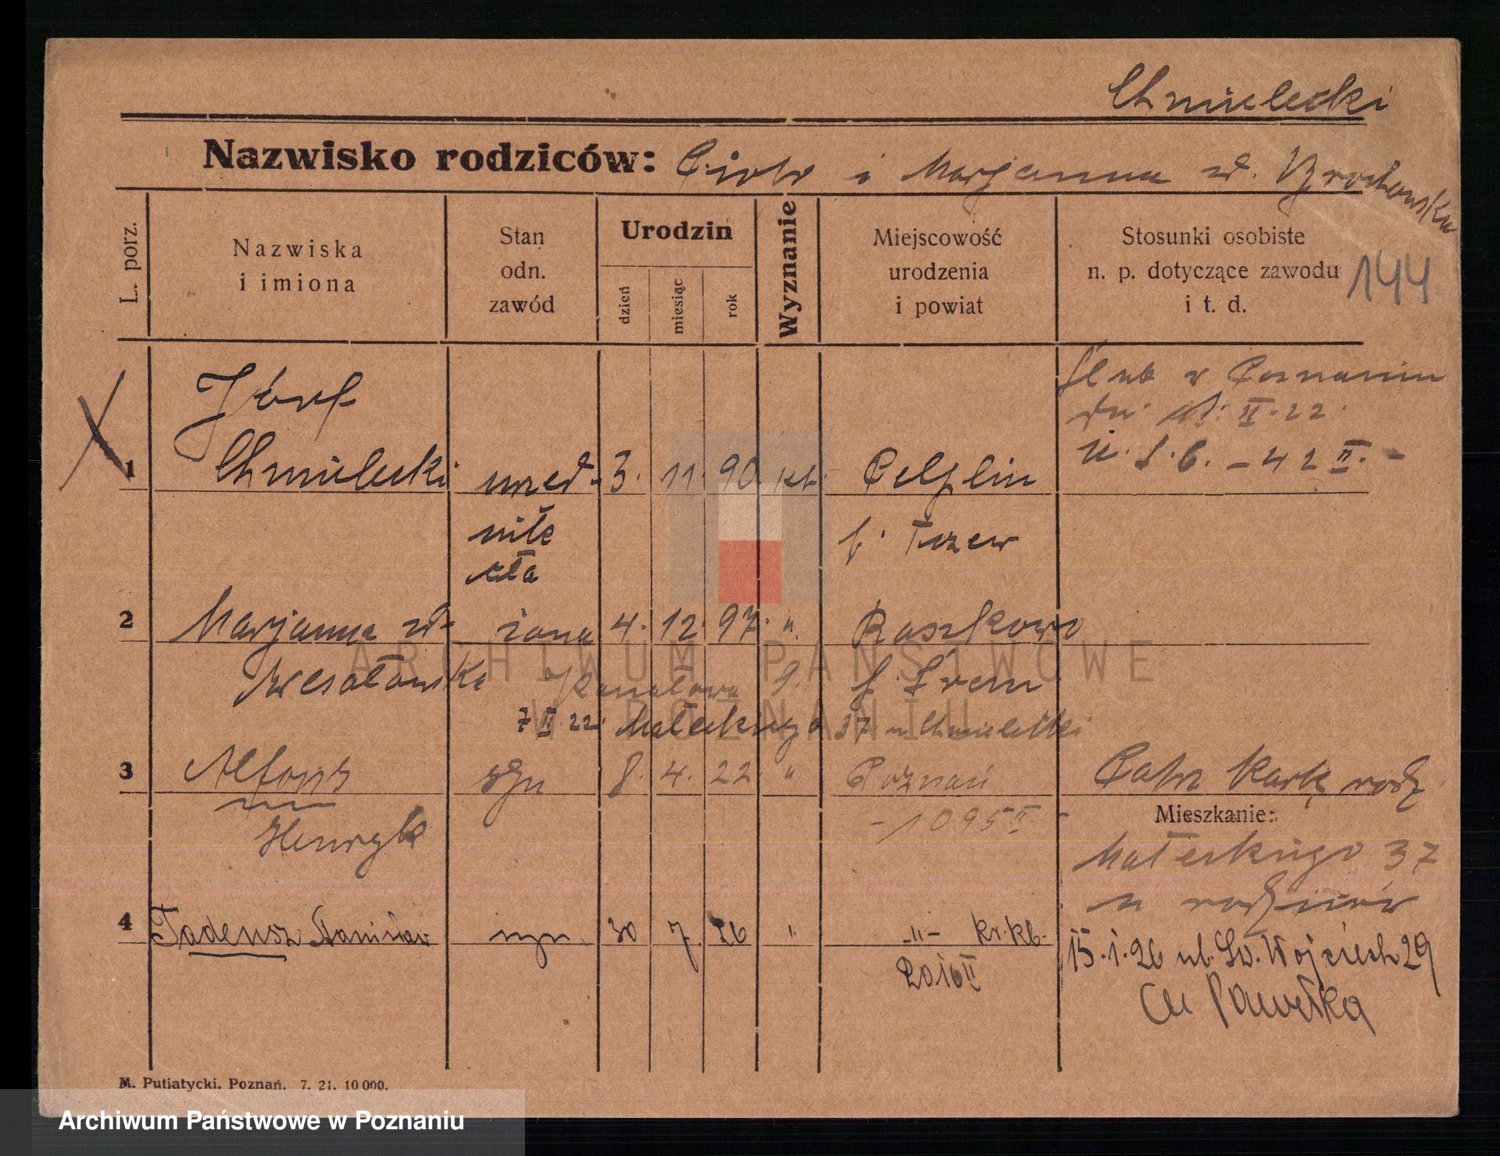 Chmielecki
Nazwisko rodziców: Piotr i Marjanna zd.
L. porz.
Nazwiska
i imiona
Stan
odn.
zawód
Urodzin
dzień
miesiąc
rok
Wyznanie
Miejscowość
urodzenia
i powiat
Stosunki osobiste
n. p. dotyczące zawodu
i t. d.
144
Józef
Ślub w Poznaniu
dn. II. 22.
1 Chmielecki urzęd- 3. 11. 90 kt. Pelplin
- 42 II. -
nik
p. Tczew
cła
2 Marjanna zd- żona 4. 12. 97. " Raszkowo
Wesołowska Kanałowa 9. p. Śrem
7 II. 22. Małeckiego 37 u Chmielecki
3 Alfons syn 8. 4. 22 " Poznań Patrz kartę rodz.
Henryk - 1095 II. -
Mieszkanie:
Małeckiego 37
u rodziców
4 Tadeusz Stanisław syn 30 7. 26 " -"- kr. kb.
2016 II
15. 1. 26 ul. Św. Wojciech 29
Pawełka
M. Putiatycki. Poznań. 7. 21. 10 000.
ARCHIWUM PAŃSTWOWE
W POZNANIU
Archiwum Państwowe w Poznaniu